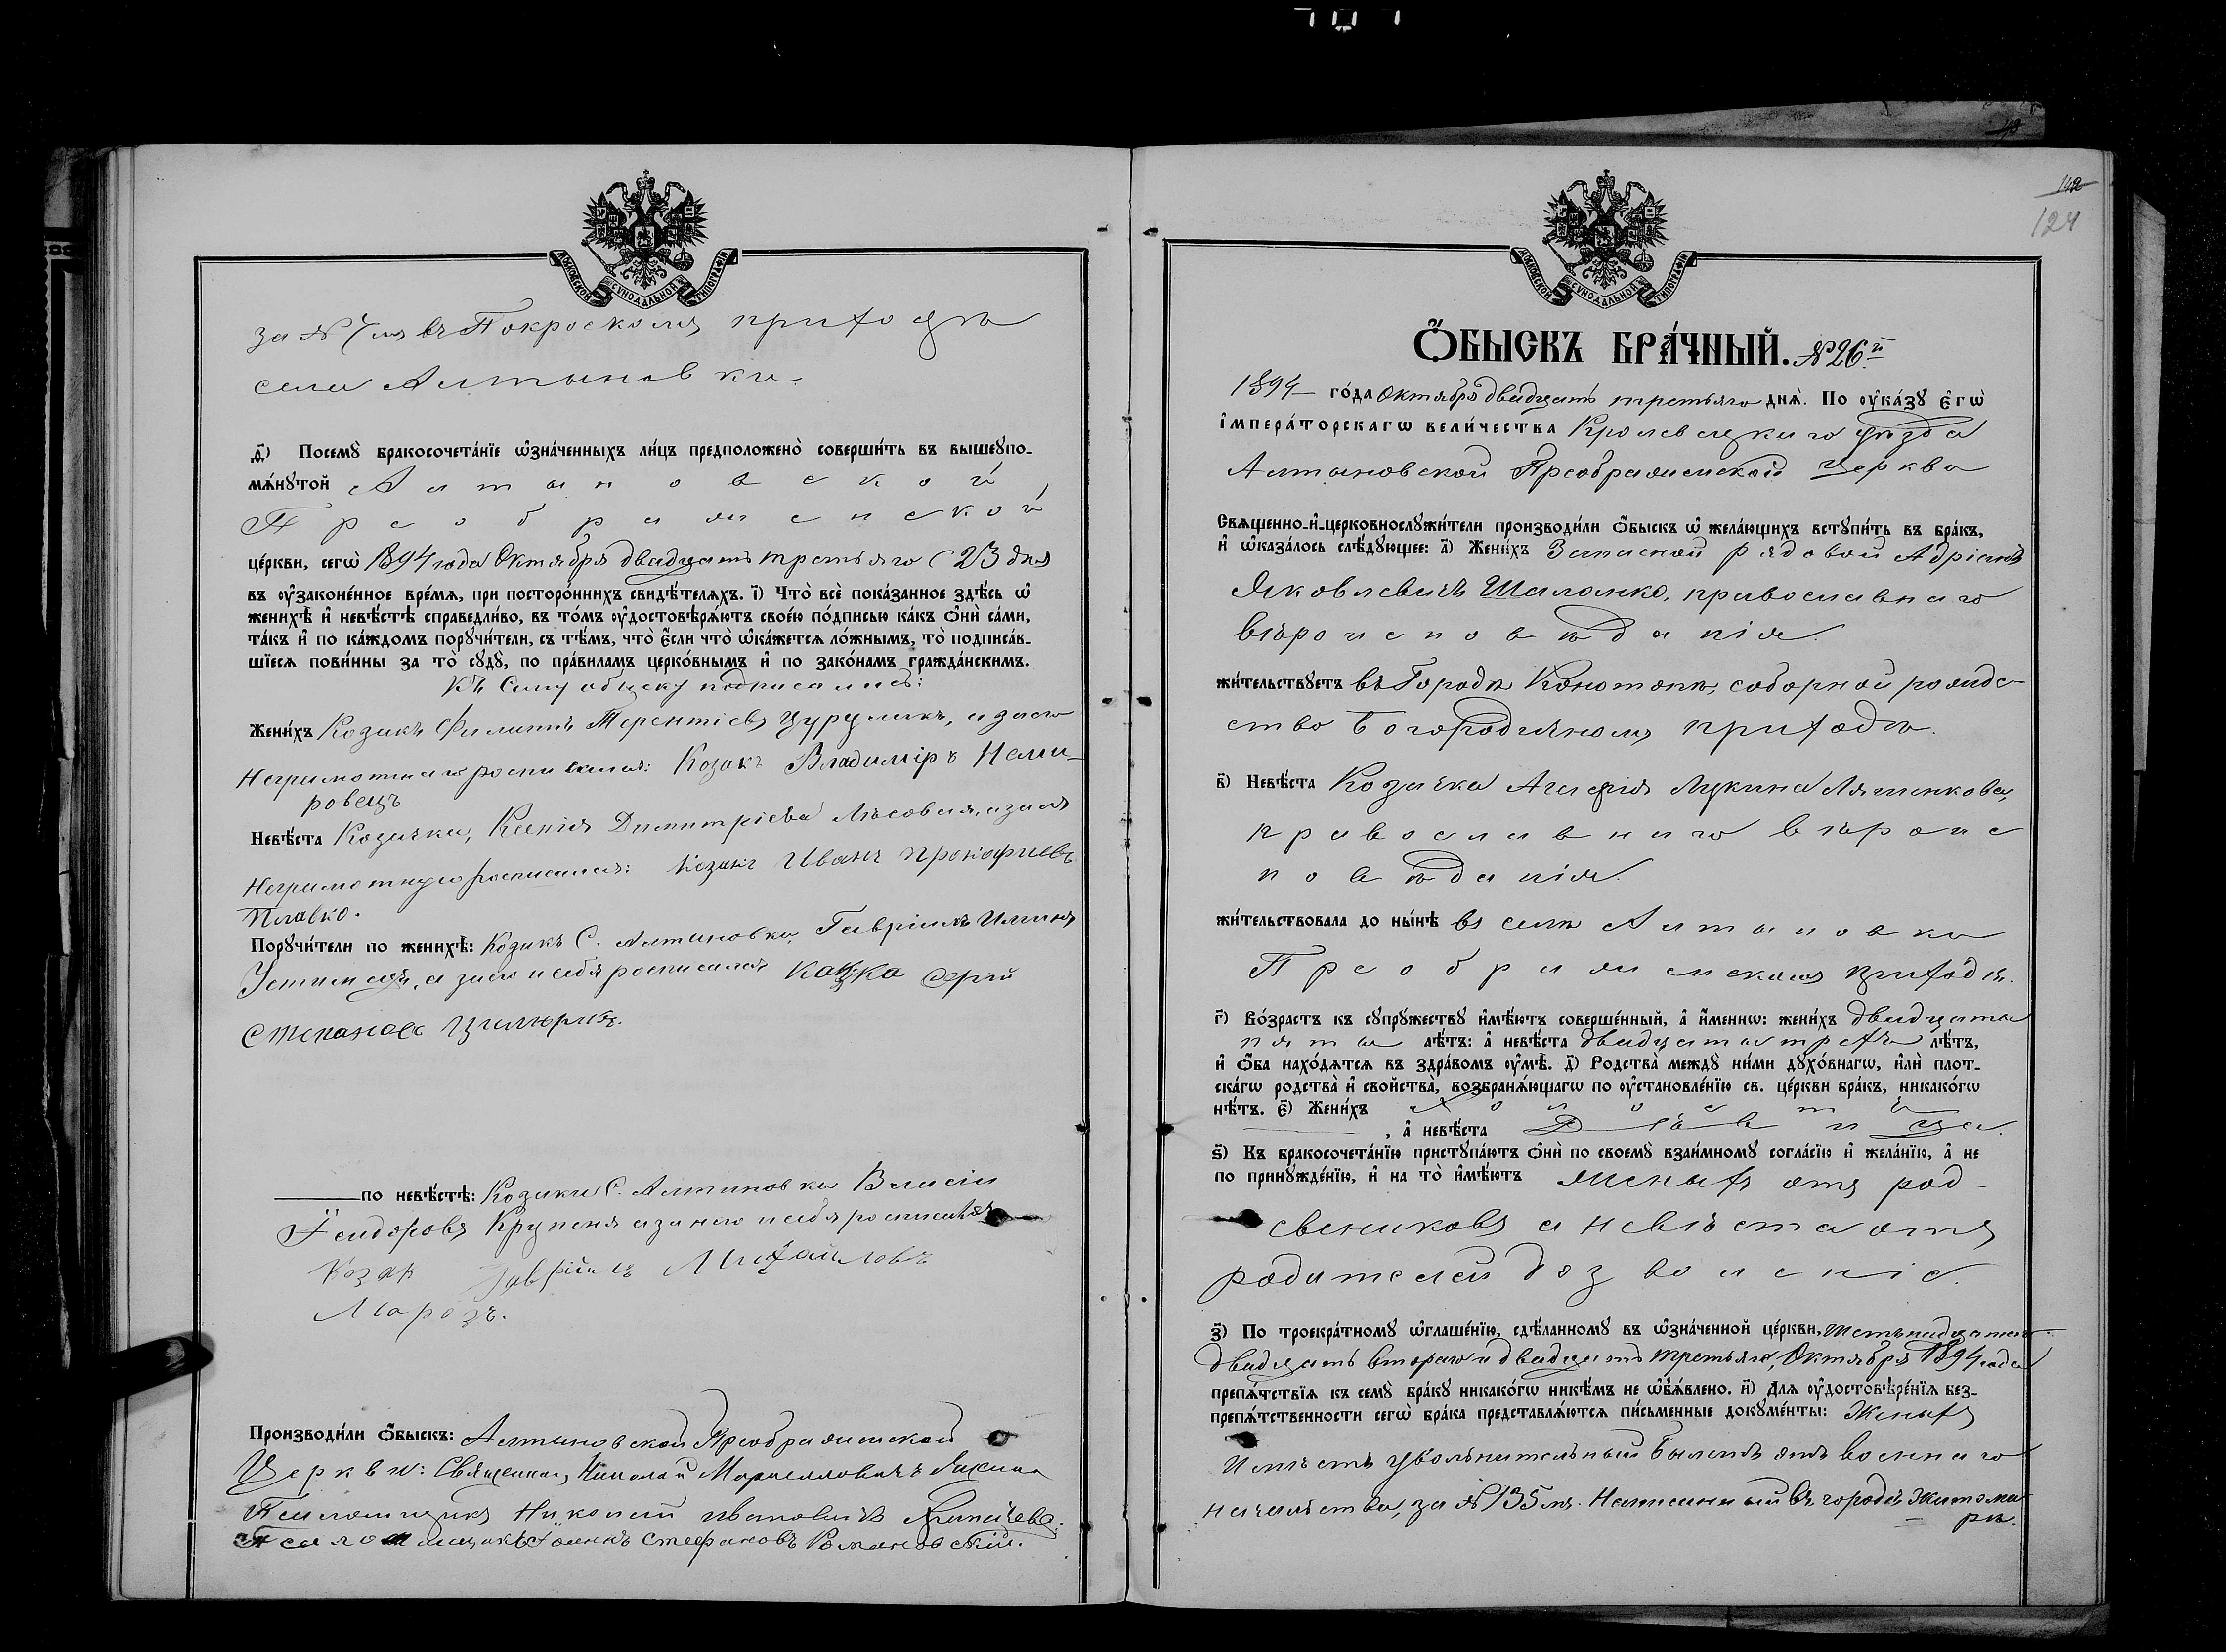 МОСКОВСКОЙ СУНОДАЛЬНОЙ ТИПОГРАФІИ
за № 7мъ въ Покроскомъ приходѣ
села Алтыновки.
д҃) Посемꙋ̀ бракосочета́нїе ѡ҆зна́ченныхъ ли́цъ предположено̀ соверши́ть въ вышеꙋпо-
мѧ́нꙋтой Алтыновской,
Преображенской
це́ркви, сегѡ̀ 1894 года Октября двадцать третьяго (23 дня)
въ ᲂу҆законе́нное вре́мѧ, при посторо́ннихъ свидѣ́телѧхъ. і҃) Что̀ всѐ пока́занное здѣ́сь ѡ҆
женихѣ̀ и҆ невѣ́стѣ справедли́во, въ то́мъ ᲂу҆достовѣрѧ́ютъ свое́ю по́дписью ка́къ ѻ҆нѝ са́ми,
та́къ и҆ по ка́ждомъ порꙋчи́тели, съ тѣ́мъ, что̀ є҆́сли что̀ ѡ҆ка́жетсѧ ло́жнымъ, то̀ подписа́в-
шїесѧ пови́нны за то̀ сꙋдꙋ̀, по пра́виламъ церко́внымъ и҆ по зако́намъ гражда́нскимъ.
Къ Сему обыску подписались:
Жени́хъ Козакъ Филиппъ Терентіевъ Цурупикъ, а за его
Неграмотнаго росписался: Козакъ Владиміръ Неми-
ровецъ
Невѣ́ста Козачка, Ксенія Димитріева Лѣсовая, а за ея
Неграмотную росписался: Козакъ Иванъ Прокофіевъ
Плавко.
Порꙋчи́тели по женихѣ̀: Козакъ С. Алтыновки, Гавріилъ Илиинъ
а за его и себя росписался Сергій
Степановъ
по невѣ́стѣ: Козаки С. Алтыновки Василій
Феодоровъ Крупеня а за него и себя росписался
Козак Гавріилъ Михайловъ
Морозъ.
Производи́ли ѻ҆́быскъ: Алтыновской Преображенской
Церкви: Священникъ Николай
Псаломщикъ Николай Ивановичъ
Псаломщикъ Іоаннъ Стефановъ Романовскій.
142
124
МОСКОВСКОЙ СУНОДАЛЬНОЙ ТИПОГРАФІИ
Ѻ҆́БЫСКЪ БРА́ЧНЫЙ. №26й
1894 го́да Октября двадцать третьяго днѧ̀. По ᲂу҆ка́зꙋ є҆гѡ̀
і҆мпера́торскагѡ вели́чества Кролевецкаго уѣзда
Алтыновской Преображенской Церкви
Свѧщенно-и҆-церковнослꙋжи́тели производи́ли ѻ҆́быскъ ѡ҆ жела́ющихъ встꙋпи́ть въ бра́къ,
и҆ ѡ҆каза́лось слѣ́дꙋющее: а҃) Жени́хъ Запасной рядовой Адріанъ
Яковлевичъ Шаломко, православнаго
вѣроисповѣданія.
жи́тельствꙋетъ въ Городѣ Конотопѣ, соборной рожде-
ство Богородичномъ приходѣ.
в҃) Невѣ́ста Козачка Агафія Лукина Ляшенкова,
православнаго вѣроис
повѣданія.
жи́тельствовала до ны́нѣ въ селѣ Алтыновки
Преображенскомъ приходѣ.
г҃) Во́зрастъ къ сꙋпрꙋжествꙋ и҆мѣ́ютъ соверше́нный, а҆ и҆́меннѡ: жени́хъ двадцати
пяти лѣ́тъ: а҆ невѣ́ста двадцати трехъ лѣ́тъ,
и҆ ѻ҆́ба нахо́дѧтсѧ въ здра́вомъ ᲂу҆мѣ̀. д҃) Родства̀ междꙋ̀ ни́ми дꙋхо́внагѡ, и҆лѝ плот-
ска́гѡ родства̀ и҆ свойства̀, возбранѧ́ющагѡ по ᲂу҆становле́нїю св. це́ркви бра́къ, никако́гѡ
нѣ́тъ. є҃) Жени́хъ Холостъ
, а҆ невѣ́ста Дѣвица.
ѕ҃) Къ бракосочета́нїю пристꙋпа́ютъ ѻ҆нѝ по своемꙋ̀ взаи́мномꙋ согла́сїю и҆ жела́нїю, а҆ не
по принꙋжде́нїю, и҆ на то̀ и҆мѣ́ютъ Женихъ отъ род-
свениковъ а невѣста отъ
родителей дозволеніе.
з҃) По троекра́тномꙋ ѡ҆глаше́нїю, сдѣ́ланномꙋ въ ѡ҆зна́ченной це́ркви, шестьнадцатаго
двадцать втораго и двадцать третьяго, Октября 1894 года
препѧ́тствїѧ къ семꙋ̀ бра́кꙋ никако́гѡ никѣ́мъ не ѡ҆б̾ѧ́влено. и҃) Длѧ ᲂу҆достовѣре́нїѧ без-
препѧ́тственности сегѡ̀ бра́ка представлѧ́ютсѧ пи́сьменные докꙋме́нты: Женихъ
Имѣетъ увольнительный билетъ отъ военнаго
начальства, за №135мъ. Написанный въ городѣ Житоми-
рѣ.